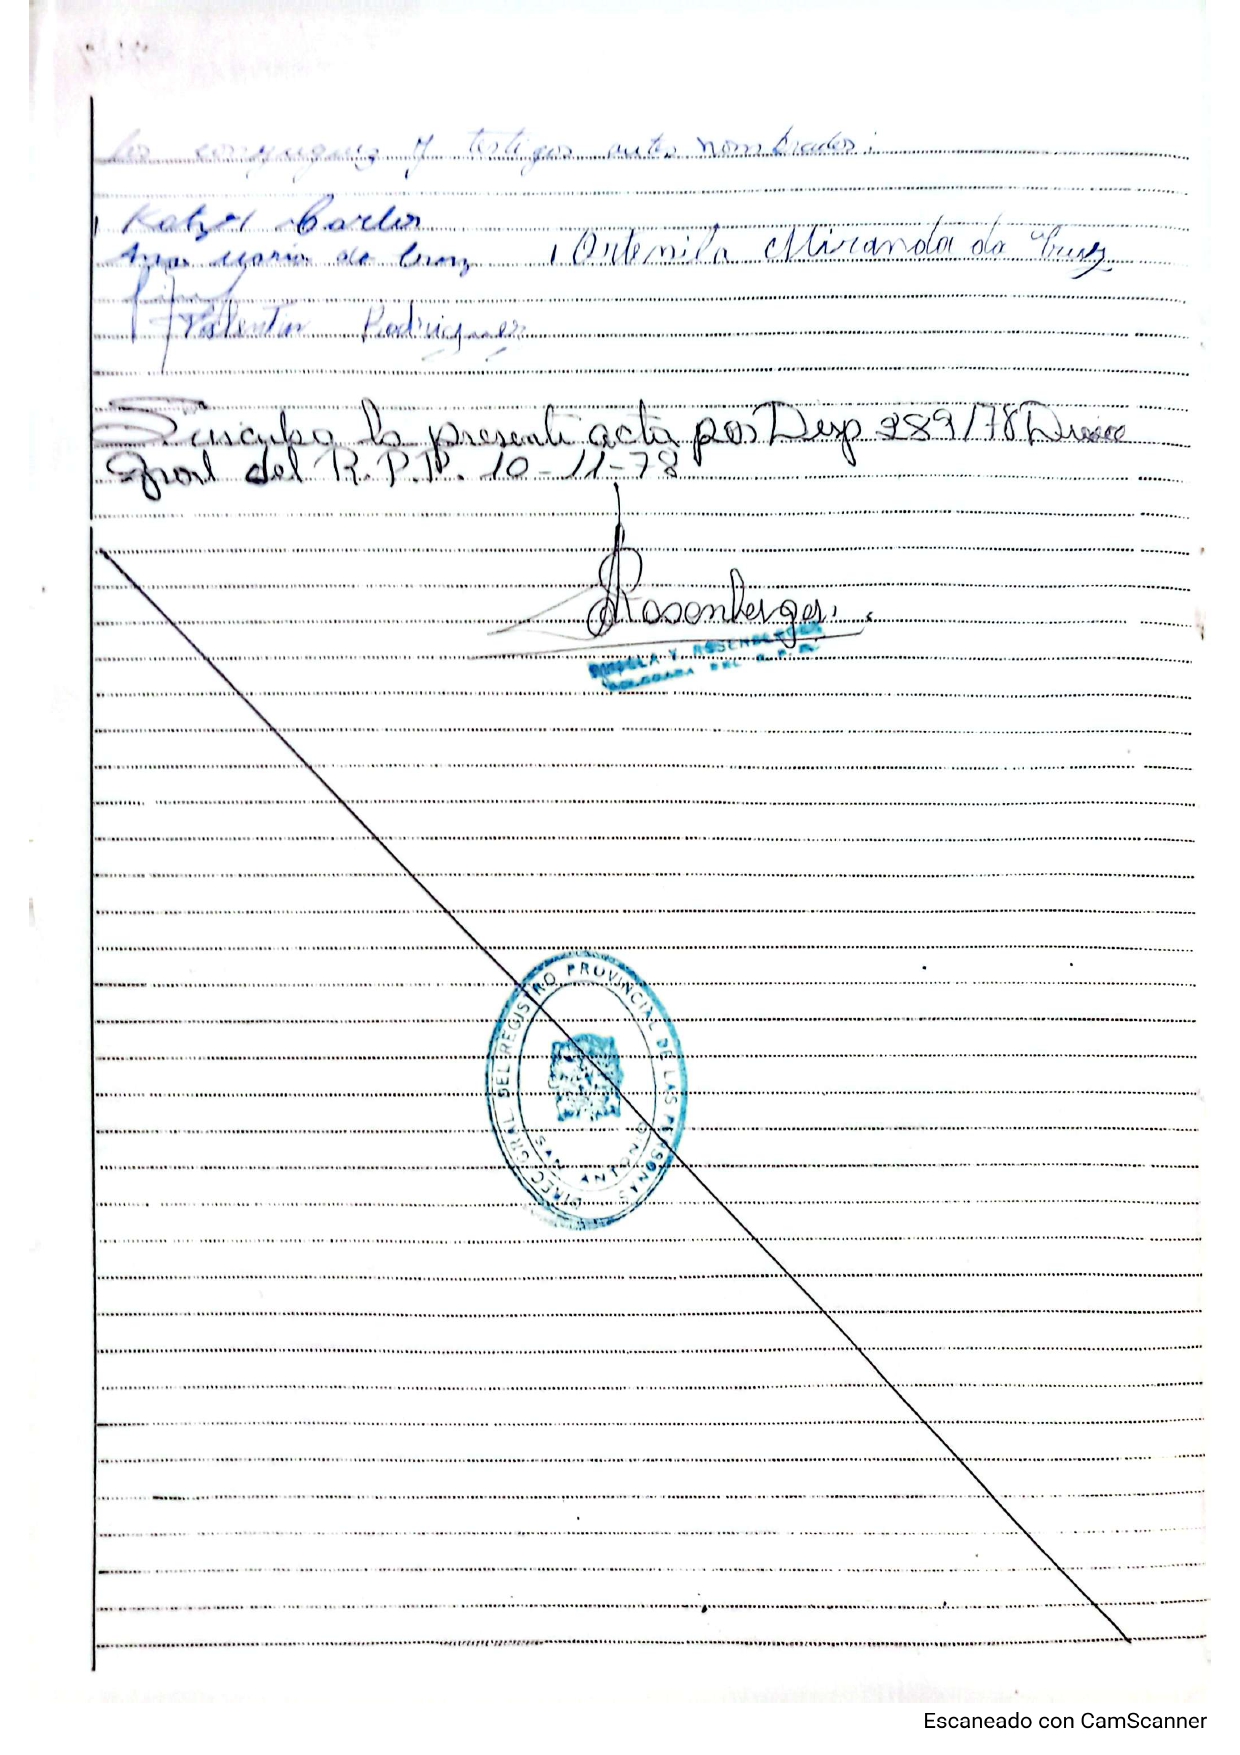 los conyuguez y testigos antes nombrados:
Katzel Carlos
Ana Maria da Cruz
Ortemila Miranda da Cruz
Valentin Rodriguez
Suscribo la presente acta por Disp 289/78 Direcc
Gral del R.P.P. 10-11-78
Rosenberger
Y. ROSENBERGER
DIREC. GRAL. DEL REGISTRO PROVINCIAL DE LAS PERSONAS
SAN ANTONIO
Escaneado con CamScanner